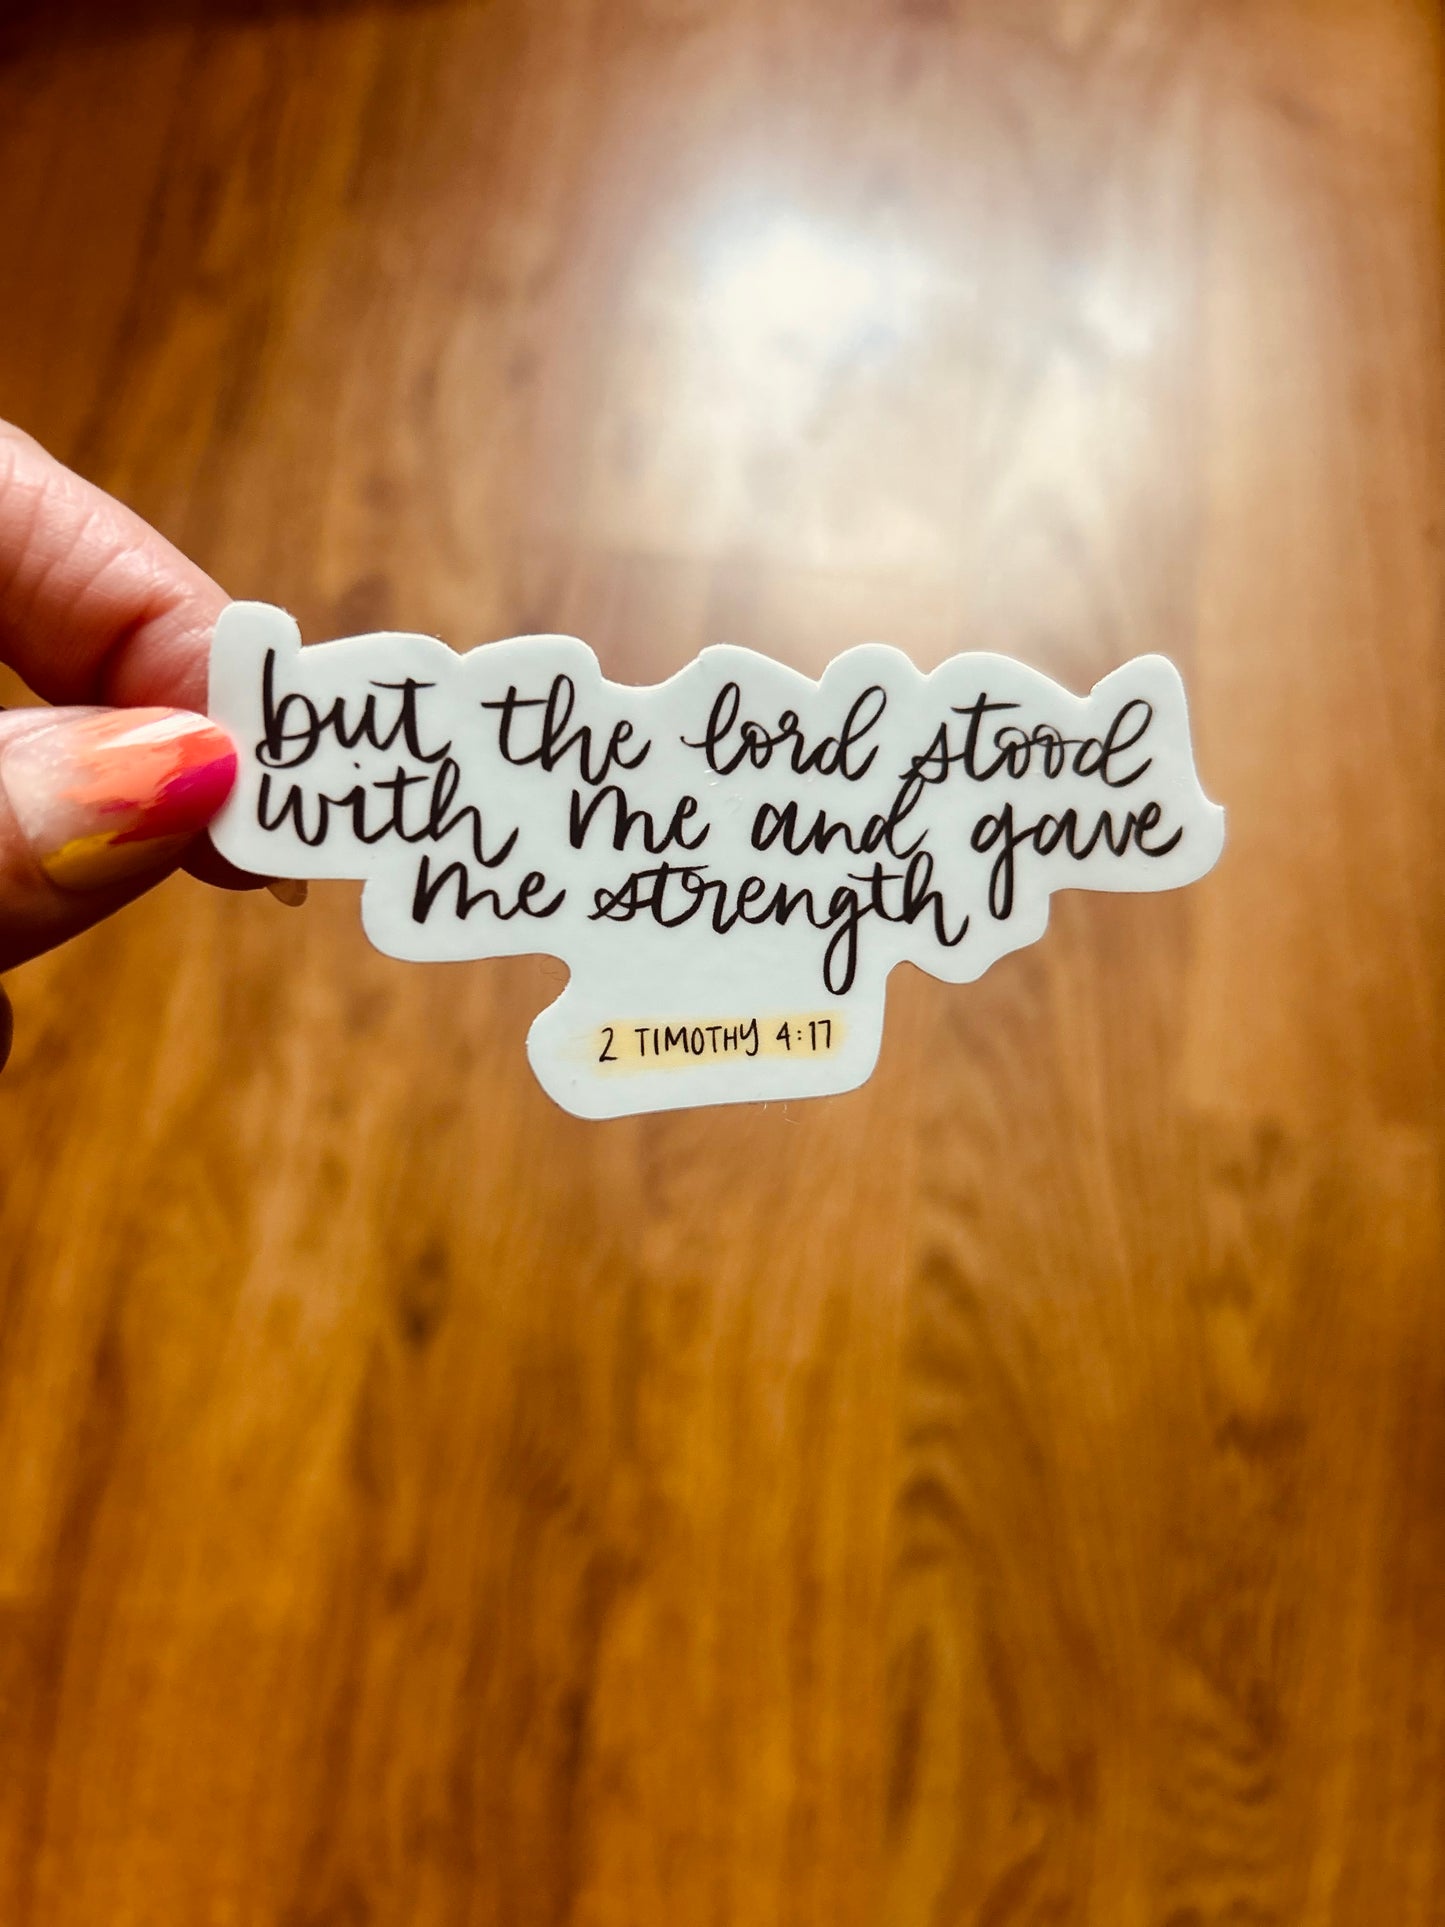 but the lord stood
with me and gave
me strength
2 TIMOTHY 4:17